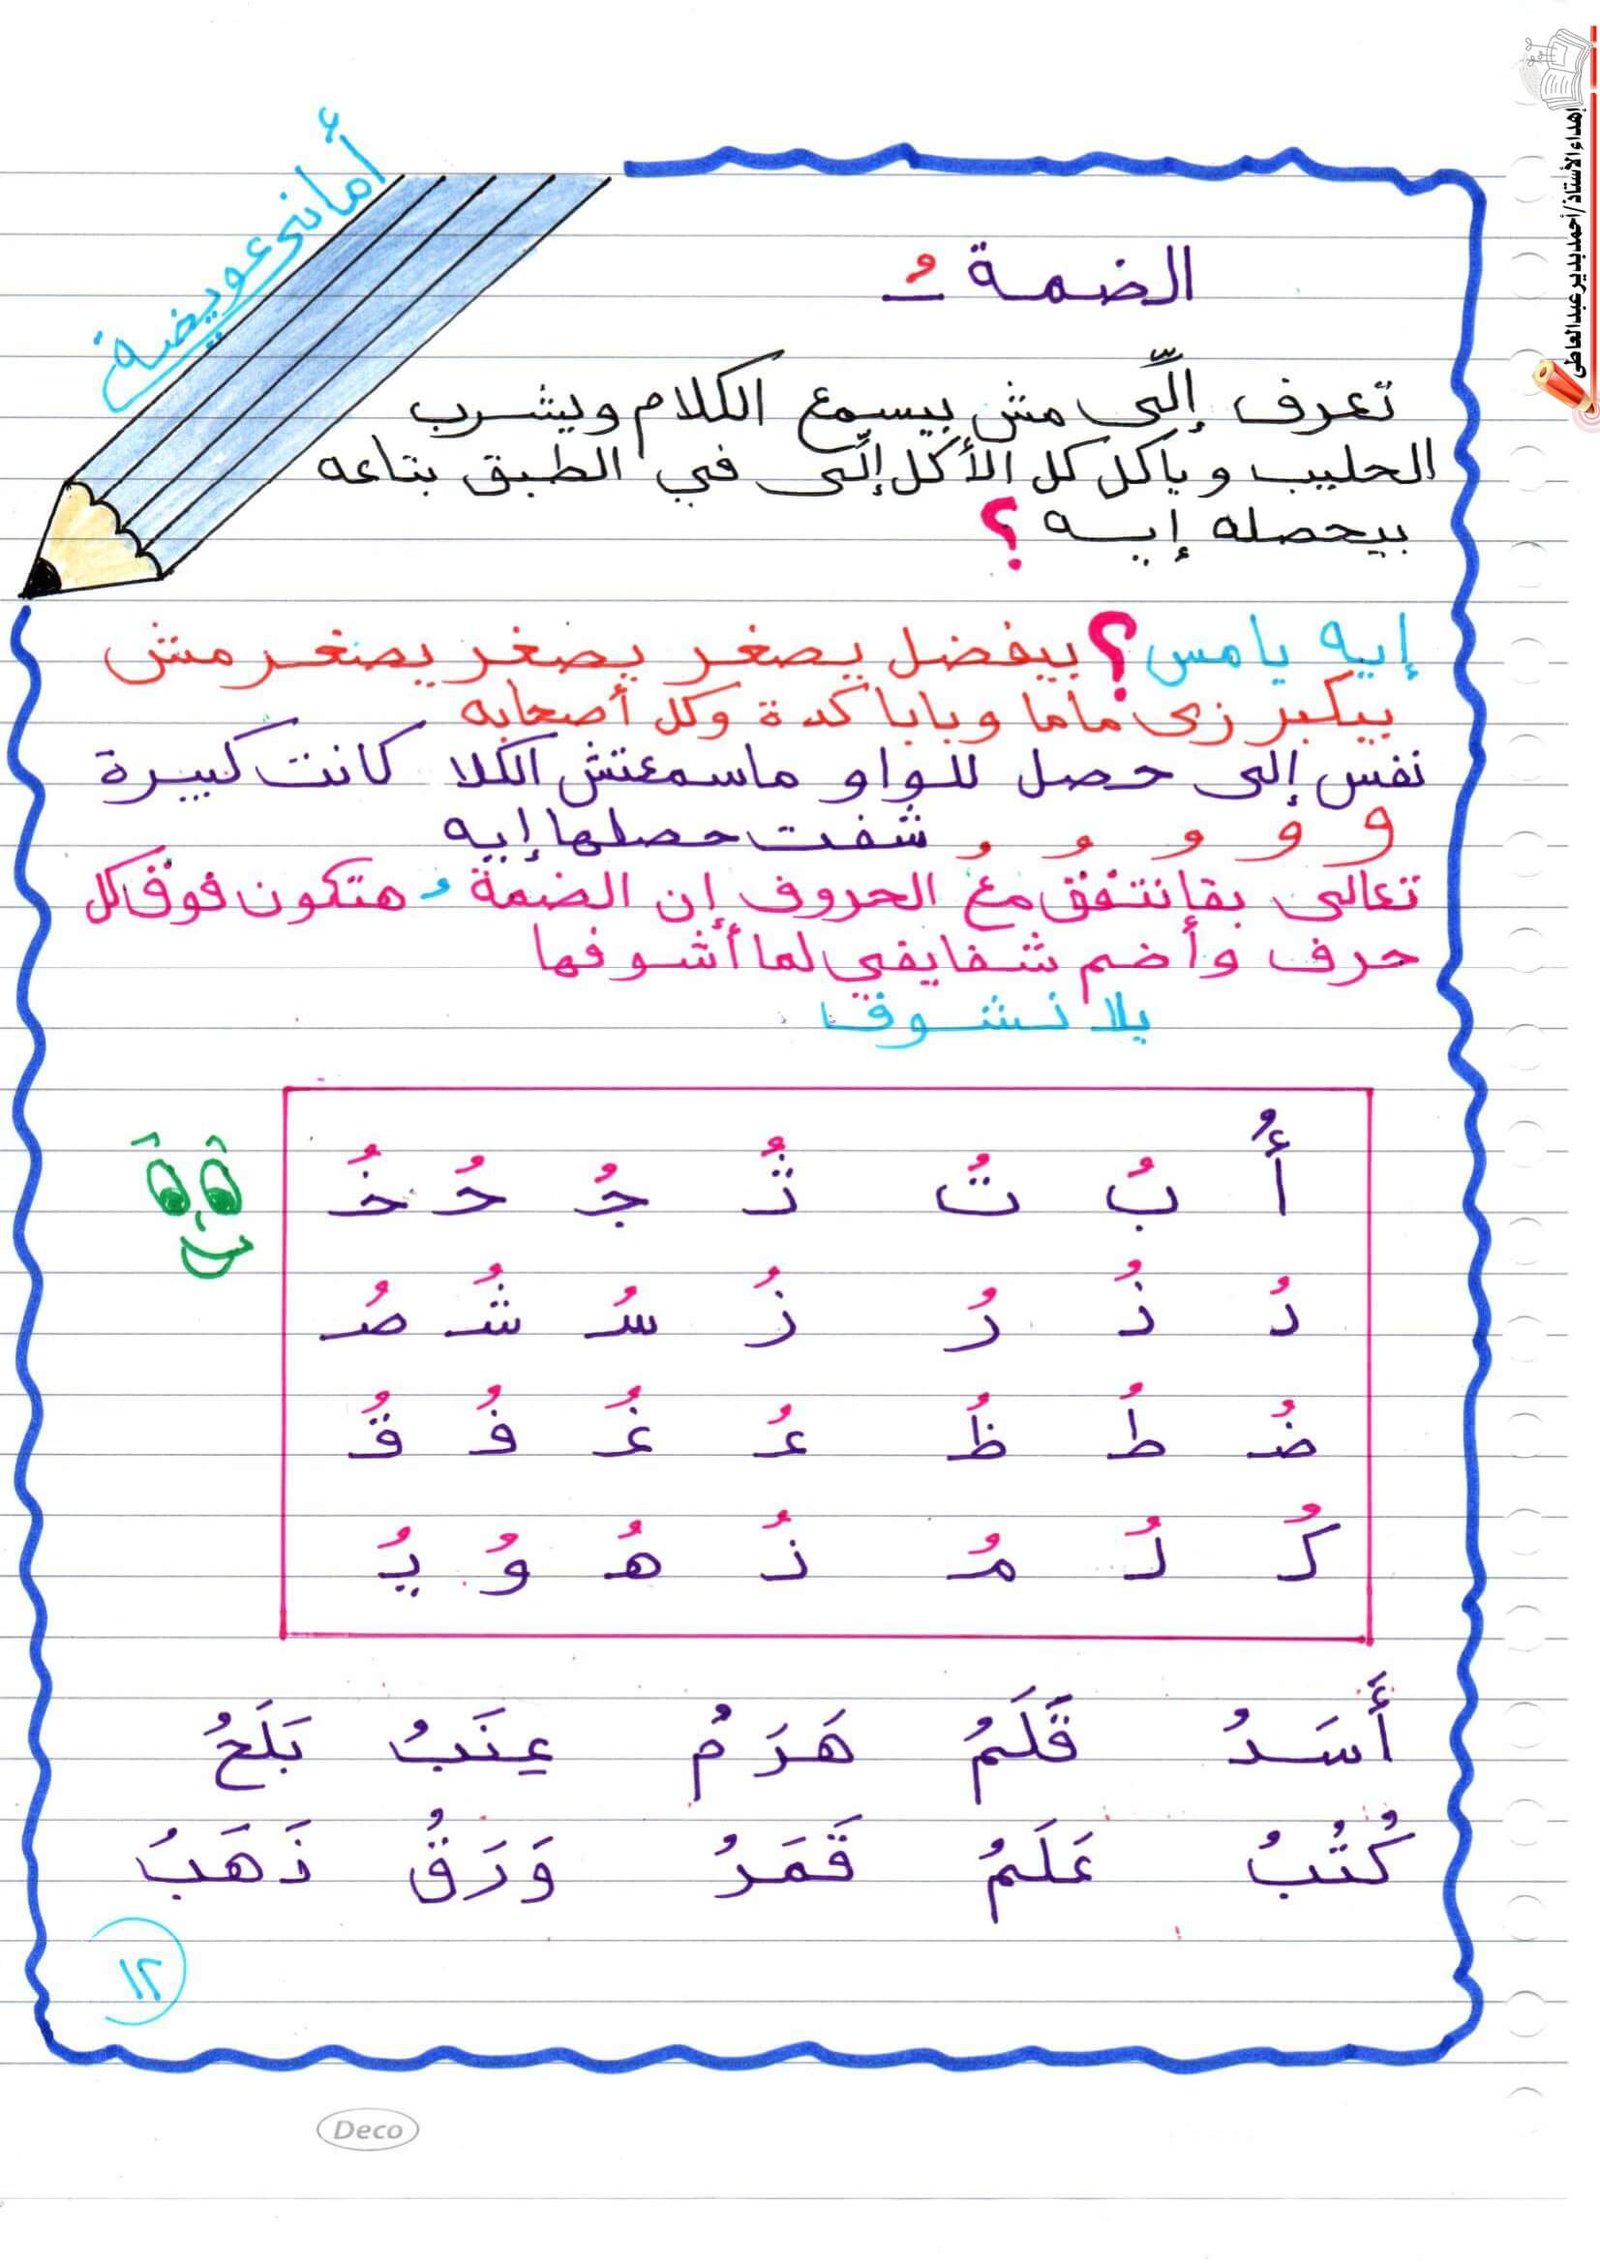 إهداء الأستاذ/أحمد بدير عبدالعاطى
أمانى عويضة
الضمة ـُ
تعرف إلّى مش بيسمع الكلام ويشرب
الحليب وياكل كل الأكل إلّى في الطبق بتاعه
بيحصله إيه ؟
إيه يا مس ؟ بيفضل يصغر يصغر يصغر مش
بيكبر زى ماما وبابا كدة وكل أصحابه
نفس إلى حصل للواو ماسمعتش الكلا كانت كبيرة
و و و و و شفت حصلها إيه
تعالى بقا نتفق مع الحروف إن الضمة ُ هتكون فوق كل
حرف وأضم شفايفى لما أشوفها
يلا نشوف
أُ بُ تُ ثُ جُ حُ خُ
دُ ذُ رُ زُ سُ شُ صُ
ضُ طُ ظُ عُ غُ فُ قُ
كُ لُ مُ نُ هُ وُ يُ
أَسَدُ قَلَمُ هَرَمُ عِنَبُ بَلَحُ
كُتُبُ عَلَمُ قَمَرُ وَرَقُ ذَهَبُ
١٢
Deco